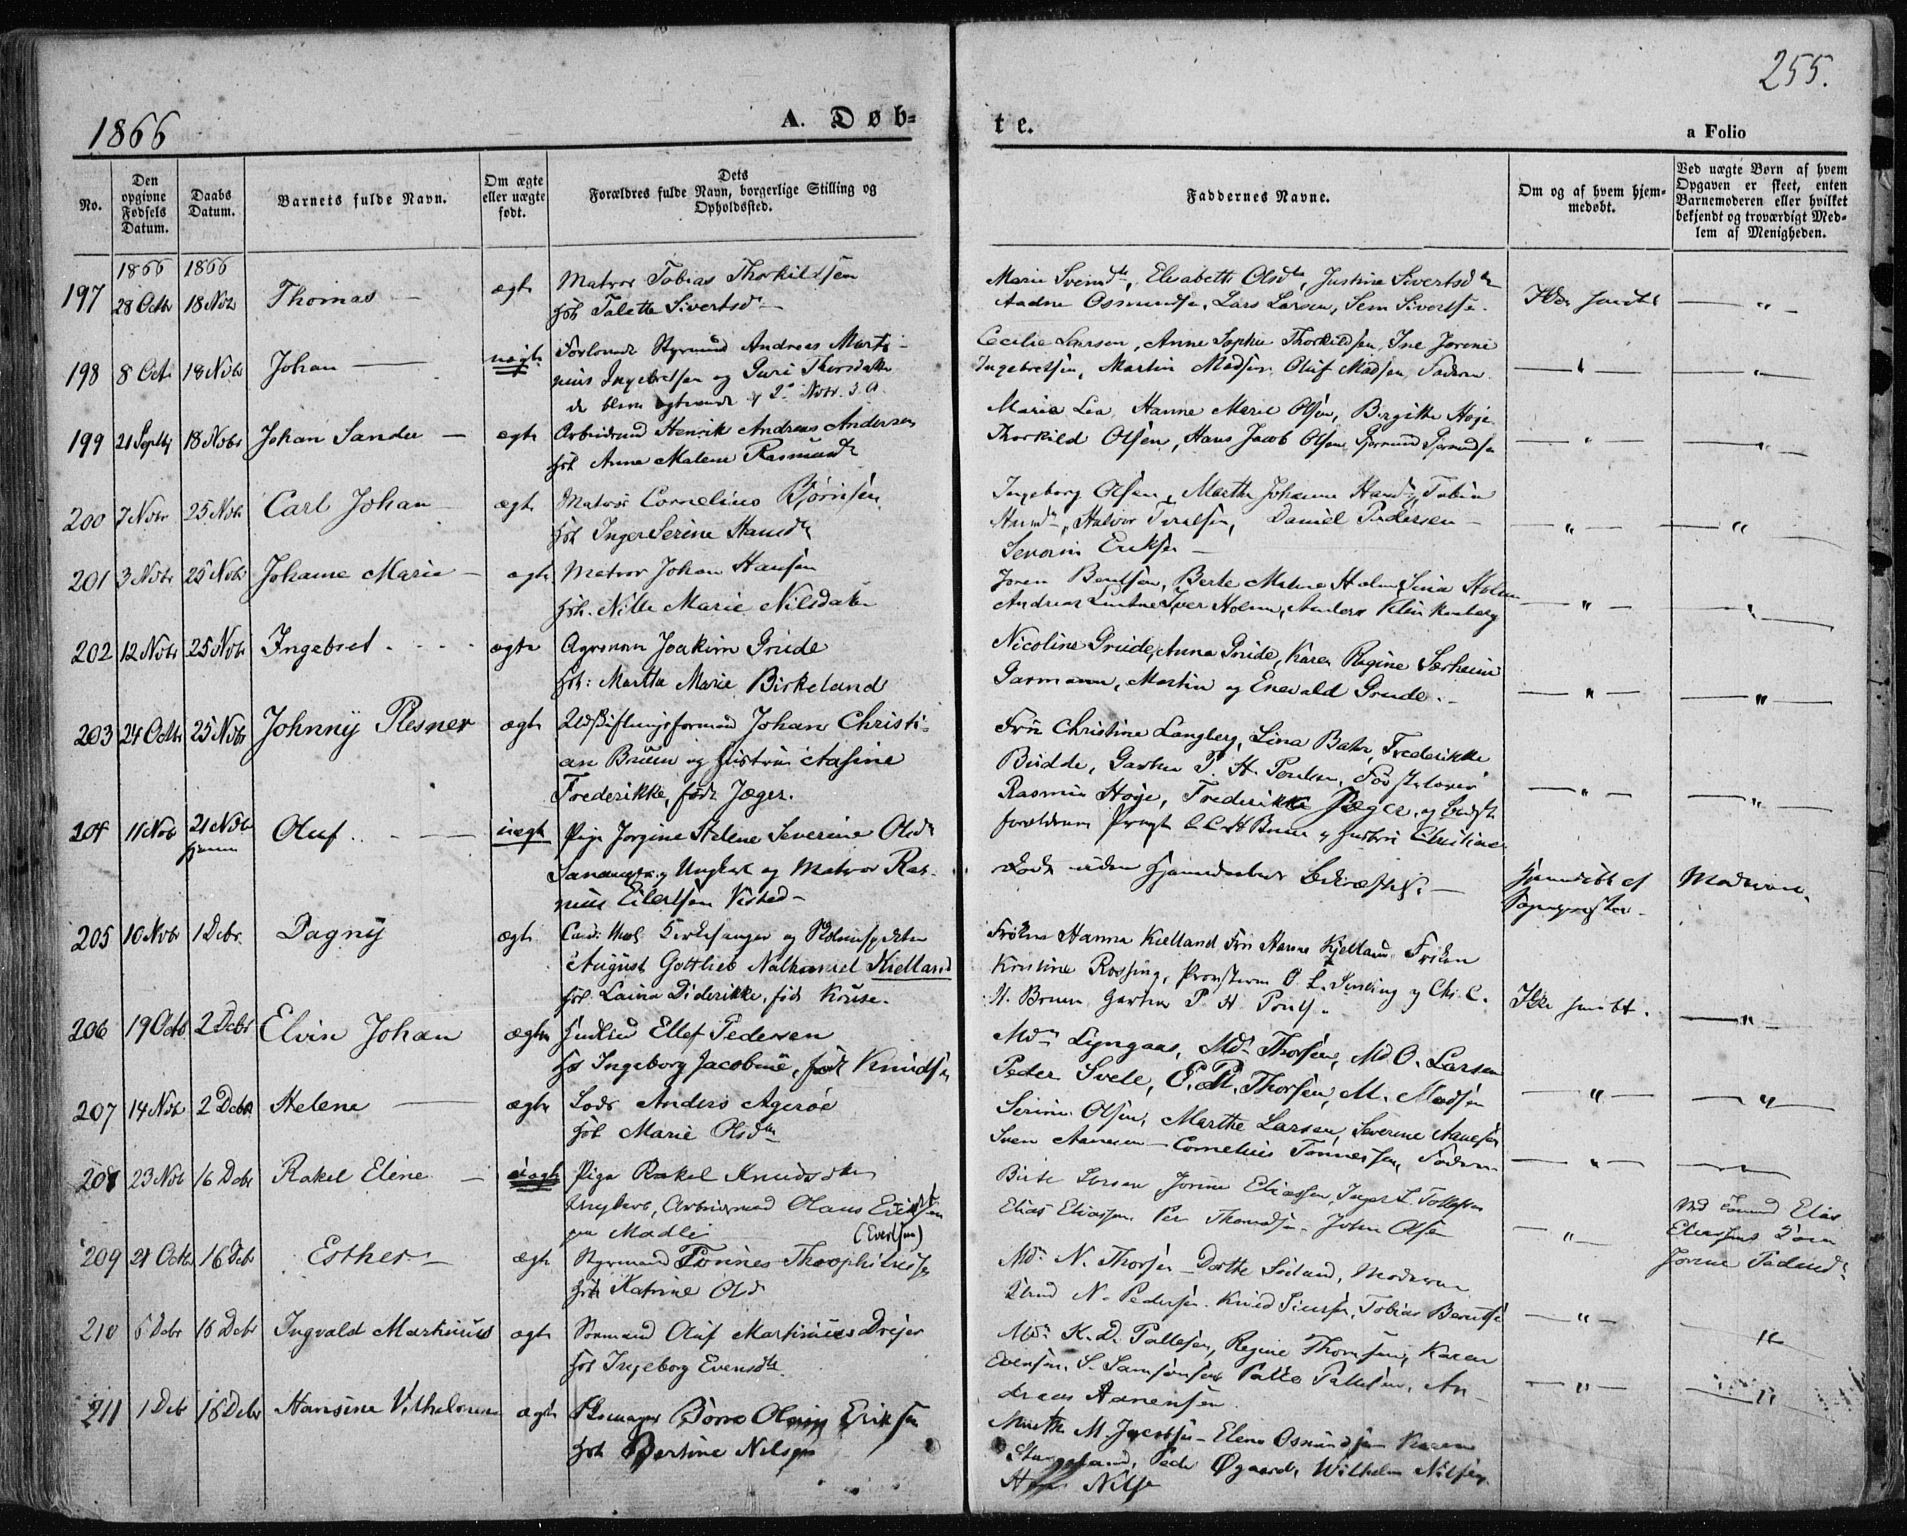 255.
1866
A. Døb-
te.
a Folio
No.
Den opgivne Fødsels Datum.
Daabs Datum.
Barnets fulde Navn.
Om ægte eller uægte født.
Dets Forældres fulde Navn, borgerlige Stilling og Opholdssted.
Faddernes Navne.
Om og af hvem hjemmedøbt.
Ved uægte Børn af hvem Opgaven er skeet, enten Barnemoderen eller hvilket bekjendt og troværdigt Medlem af Menigheden.
1866 1866
197 28 Octbr 18 Nobr Thomas — ægte Matros Tobias Thorkildsen
Hst Talette Sivertsd
Marie Svend, Elisabeth Olsd, Justine Sivertsd
Aadne Osmundsen, Lars Larsen, Sem Sivertse. Ikke — " —
198 8 Oct 18 Nobr Johan — uægte Forlovede Styrmand Andreas Marti-
nius Ingebretsen og Guri Thorsdatter
de bleve ægteviede 2 Nobr. d. A.
Cecilie Larsen, Anne Sophie Thorkildsen, Ine Jorine
Ingebretsen, Martin Madsen, Oluf Madsen, Faderen
199 21 Septbr 18 Nobr Johan Sander — ægte Arbeidsmd Henrik Andreas Andersen
Hst Anne Malene Rasmusd
Maria Lea, Hanne Marie Olsen, Birgitte Høje
Thorkild Olsen, Hans Jacob Olsen, — " — — " —
200 7 Nobr 25 Nobr Carl Johan — ægte Matros Cornelius Bjørnsen
Hst Inger Serine Hansd
Ingeborg Olsen, Marthe Johanne Hansd, Tobia
Halvor Toralsen, Daniel Pedersen —
Severin Eriksen — — " — — " —
201 3 Nobr 25 Nobr Johanne Marie — ægte Matros Johan Hansen
Hst. Nille Marie Nilsdatter
Joren Bentsen, Berte Malene Holm, Sina Holm
Andreas Iver Holm, Anders Klinkenberg — " —
202 12 Nobr 25 Nobr Ingebret ægte Agronom Joakim Grude
Hst: Martha Marie Birkeland
Nicoline Grude, Anna Grude, Karen Regine Særheim
Garmann, Martin og Enevald Grude. — " — — " —
203 24 Octbr 25 Nobr Johnny Plesner ægte Udskiftningsformand Johan Christi-
an Bruun og Hustru Aasine
Frederikke, født Jæger.
Fru Christine Langberg, Lina Bahr, Frederikke
Budde, Gartner P. H. Poulsen, Forstelærer
Rasmus Høje, Frederikke Jæger, og Bedste-
forældrene Provst C. C. H. Bruun og Hustru Christine — " — — " —
204 11 Nob 21 Nob Hjemme Oluf. — uægte Pige Jorgine Helene Severine Olsd
Ungkarl og Matros Ras-
mus Eilertsen Visted —
Død uden Hjemmedaabens Bekræftelse. — Hjemmedøbt af
Sognepræsten. Moderen.
205 10 Nobr 1 Debr. Dagny ægte. Cand: theol. Kirkesanger og Skoleinspektør
August Gottlieb Nathanael Kielland
Hst. Laina Diderikke, født Kruse.
Frøken Hanna Kielland Fru Hanne Kjelland, Frøken
Kristine Rossing, Provsterne O. L. Sinding og Chr. C.
H. Bruun, Gartner P. H. Pouls. Ikke — " —
206 19 Octb 2 Debr Elvin Johan ægte Ellef Pedersen
Hst Ingeborg Jacobine, født Knudsen
Mdm Lyngaas, Md. Thorsen, Md. O. Larsen
Peder Svele, E. M. Thorsen, M. Madsen — " — — " —
207 14 Nob 2 Debr Helene — ægte Lods Anders Agerøe
Hst Marie Olsd
Serine Olsen, Marthe Larsen, Severine Aanesen
Sven Aanesen — Cornelius Tonnessen, Faderen — " —
208 23 Nob 16 Debr Rakel Eline — uægte Pige Rakel Knudsdtr
Ungkarl, Arbeidsmand Olaus Eriksen
paa Madla (Evertsen)
Birte Iversen Jorine Eliassen, Inger L. Tollefsen
Elias Eliassen Per Thomassen, John Olsen — " — Ved Formand Elias
Eliassens Kone
Jorine Pedersd
209 21 Octbr 16 Debr Esther — ægte Styrmand Tønnes Theophilussen
Hst Katrine Olsd
Md. N. Thorsen — Dorthe Seiland, Moderen
N. Pedersen. Knud Tobias Berntse — " — "
210 5 Debr 16 Debr Ingvald Martinius ægte Sømand Oluf Martinius Drejer
Hst Ingeborg Evensd
Md. K. D. Pallesen, Regine Thomsen, Karen
Evensen. S. Samsonsen Palle Pallesen. An-
dreas Aanensen. — " — "
211 1 Debr 16 Debr Hansine Vilhelmine ægte Børre Olaus Eriksen
Hst Bertine Nilsen
Marthe M. Jacobsen — Elene Osmundsen Karen
Stangeland, Peder Øgaard, Wilhelm Nilsen,
Nilse